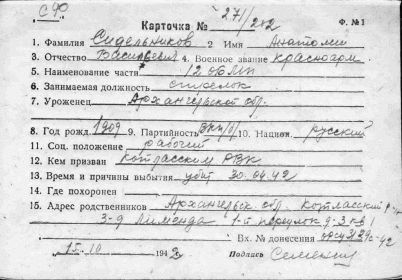 С 90
Карточка № 271/282 Ф. № 1
1. Фамилия Сидельников 2. Имя Анатолий
3. Отчество Васильевич 4. Военное звание красноарм.
5. Наименование части 12
6. Занимаемая должность стрелок
7. Уроженец Архангельской обл.
8. Год рожд. 1909 9. Партийность ВКП/б/ 10. Национ. русский
11. Соц. положение рабочий
12. Кем призван Котласским РВК
13. Время и причины выбытия убит 30.04.42
14. Где похоронен
15. Адрес родственников Архангельск. обл. Котласский р-н
3-д Лименда 1-й переулок д-3 кв 1
Вх. № донесения
15.10 1942 Подпись